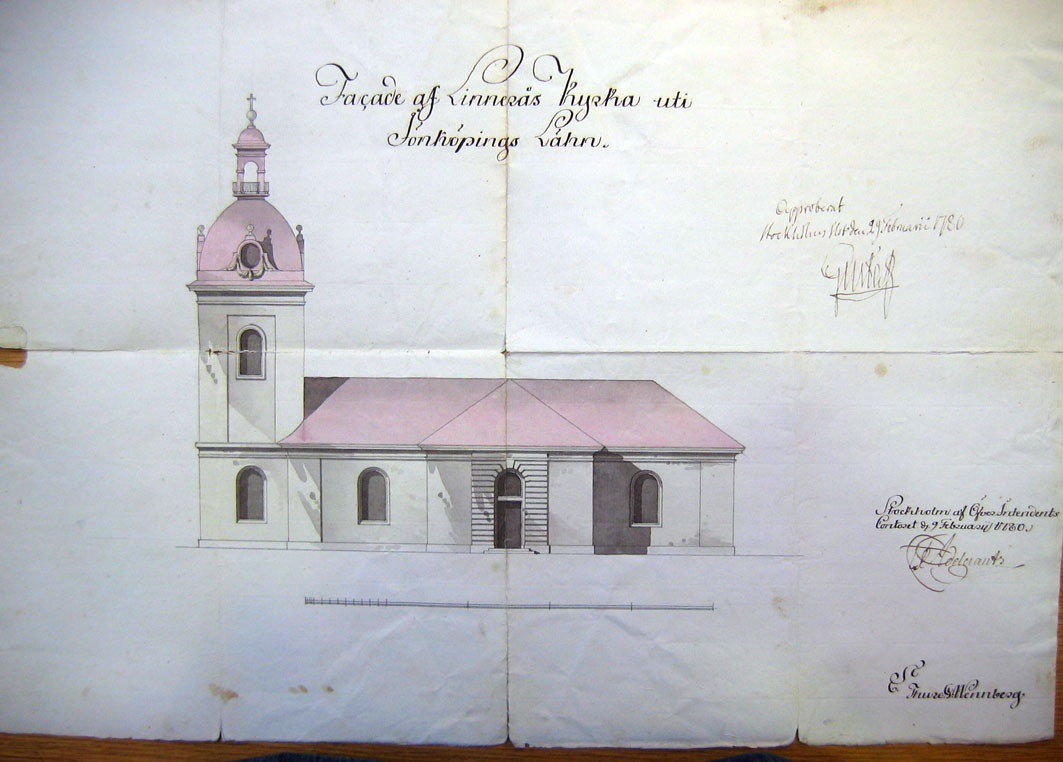 Façade af Linnerås Kyrka uti
Jönköpings Lähn.
Approberat
Stockholms Slot den 29 Februarii 1780
Gustaf
Stockholm af Öfver Intendents
Contoret d. 9 Februarij 1780.
Adelcrantz
Thure G. Wennberg.